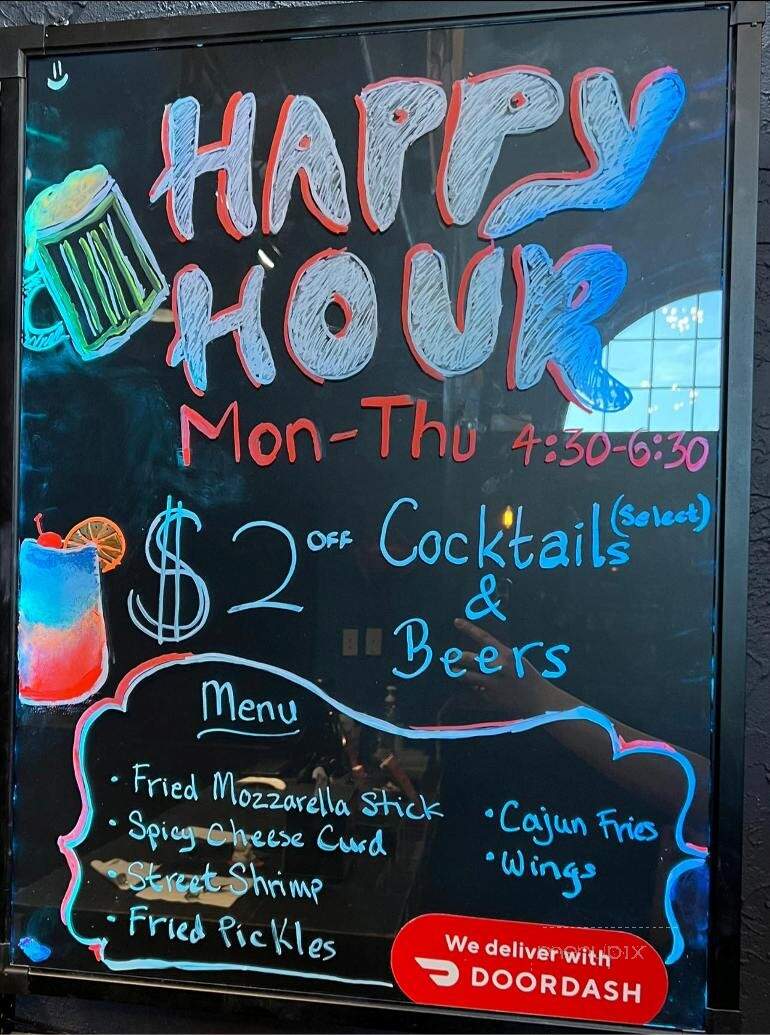 HAPPY
HOUR
Mon-Thu 4:30-6:30
$2 OFF Cocktails (Select)
&
Beers
Menu
• Fried Mozzarella Stick
• Spicy Cheese Curd
• Street Shrimp
• Fried Pickles
• Cajun Fries
• Wings
We deliver with
DOORDASH
menupix